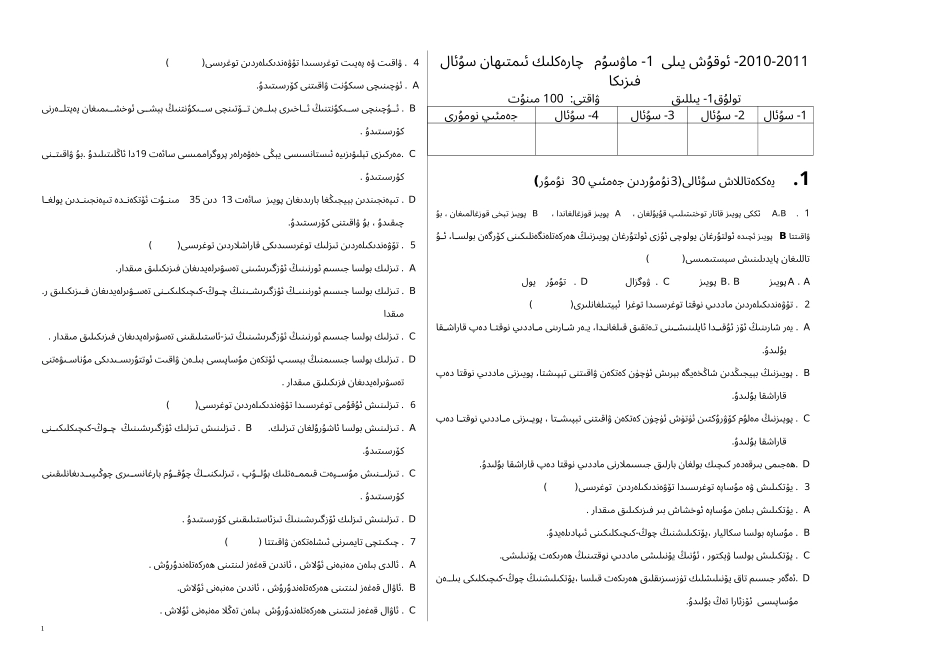 2010-2011- ئوقۇش يىلى 1- ماۋسۇم چارەكلىك ئىمتىھان سۇئال
فىزىكا
تولۇق1- يىللىق ۋاقتى: 100 مىنۇت
1- سۇئال 2- سۇئال 3- سۇئال 4- سۇئال جەمئىي نومۇرى
1. يەككەتاللاش سۇئالى(3نۇمۇردىن جەمئىي 30 نۇمۇر)
1 . A.B ئككى پويىز قاتار توختىشلىپ قويۇلغان ، A پويىز قوزغالغاندا ، B پويىز تېخى قوزغالمىغان ، بۇ
ۋاقىتتا B پويىز ئىچىدە ئولتۇرغان يولوچى ئۇزى ئولتۇرغان پويىزنىڭ ھەرىكەتلەنگەنلىكىنى كۆرگەن بولسا، ئۇ
تاللىغان پايدىلىنىش سىستېمىسى( )
A . Aپويىز B. B پويىز C . ۋوگزال D . تۆمۈر يول
2 . تۆۋەندىكىلەردىن ماددىي نوقتا توغرىسىدا توغرا ئېيتىلغانلىرى( )
A . يەر شارىنىڭ ئۆز ئوقىدا ئايلىنىشىنى تەتقىق قىلغاندا، يەر شارىنى ماددىي نوقتا دەپ قاراشقا
بۇلىدۇ.
B . پويىزنىڭ بېيجىڭدىن شاڭخەيگە بېرىش ئۈچۈن كەتكەن ۋاقىتنى تېپىشتا، پويىزنى ماددىي نوقتا دەپ
قاراشقا بۇلىدۇ.
C . پويىزنىڭ مەلۇم كۆۋرۈكتىن ئۈتۈش ئۈچۈن كەتكەن ۋاقىتنى تېپىشتا ، پويىزنى ماددىي نوقتا دەپ
قاراشقا بۇلىدۇ.
D .ھەجىمى بىرقەدەر كىچىك بولغان بارلىق جىسىملارنى ماددىي نوقتا دەپ قاراشقا بۇلىدۇ.
3 . يۆتكىلىش ۋە مۇساپە توغرىسىدا تۆۋەندىكىلەردىن توغرىسى( )
A . يۆتكىلىش بىلەن مۇساپە ئوخشاش بىر فىزىكىلىق مىقدار .
B . مۇساپە بولسا سكاليار ،يۆتكىلىشنىڭ چوڭ-كىچىكلىكىنى ئىپادىلەيدۇ.
C . يۆتكىلىش بولسا ۋېكتور ، ئۇنىڭ يۆنىلىشى ماددىي نوقتىنىڭ ھەرىكەت يۆنىلىشى.
D .ئەگەر جىسىم تاق يۆنىلىشلىك تۈزسىزىقلىق ھەرىكەت قىلسا ،يۆتكىلىشنىڭ چوڭ-كىچىكلىكى بىلەن
مۇساپىسى ئۆزئارا تەڭ بۇلىدۇ.
4 . ۋاقىت ۋە پەيىت توغرىسىدا تۆۋەندىكىلەردىن توغرىسى( )
A . ئۈچىنىچى سىكۇنت ۋاقىتنى كۆرسىتىدۇ.
B . ئۈچىنچى سىكۇنتنىڭ ئاخىرى بىلەن تۆتىنچى سىكۇنتنىڭ بېشى ئوخشىمىغان پەيتلەرنى
كۆرسىتىدۇ .
C .مەركىزى تېلېۋىزىيە ئىستانسىسى يېڭى خەۋەرلەر پروگراممىسى سائەت 19دا ئاڭلىتىلىدۇ .بۇ ۋاقىتنى
كۆرسىتىدۇ .
D . تىيەنجىندىن بېيجىڭغا بارىدىغان پويىز سائەت 13 دىن 35 مىنۇت ئۆتكەندە تىيەنجىندىن يولغا
چىقىدۇ ، بۇ ۋاقىتنى كۆرسىتىدۇ.
5 . تۆۋەندىكىلەردىن تىزلىك توغرىسىدىكى قاراشلاردىن توغرىسى( )
A . تىزلىك بولسا جىسىم ئورنىنىڭ ئۆزگىرىشىنى تەسۋىرلەيدىغان فىزىكىلىق مىقدار.
B . تىزلىك بولسا جىسىم ئورنىنىڭ ئۆزگىرىشىنىڭ چوڭ-كىچىكلىكىنى تەسۋىرلەيدىغان فىزىكىلىق ر.
مىقدا
C . تىزلىك بولسا جىسىم ئورنىنىڭ ئۆزگىرىشىنىڭ تىز-ئاستىلىقىنى تەسۋىرلەيدىغان فىزىكىلىق مىقدار .
D . تىزلىك بولسا جىسىمنىڭ بېسىپ ئۆتكەن مۇساپىسى بىلەن ۋاقىت ئوتتۇرىسىدىكى مۇناسىۋەتنى
تەسۋىرلەيدىغان فىزىكىلىق مىقدار .
6 . تىزلىنىش ئۇقۇمى توغرىسىدا تۆۋەندىكىلەردىن توغرىسى( )
A . تىزلىنىش بولسا ئاشۇرۇلغان تىزلىك. B . تىزلىنىش تىزلىك ئۆزگىرىشىنىڭ چوڭ-كىچىكلىكىنى
كۆرسىتىدۇ.
C . تىزلىنىش مۇسبەت قىممەتلىك بۇلۇپ ، تىزلىكنىڭ چۇقۇم بارغانسىرى چوڭىيىدىغانلىقىنى
كۆرسىتىدۇ .
D . تىزلىنىش تىزلىك ئۆزگىرىشىنىڭ تىزئاستىلىقىنى كۆرسىتىدۇ .
7 . چىكىتچى تايمىرنى ئىشلەتكەن ۋاقىتتا ( )
A . ئالدى بىلەن مەنبەنى ئۇلاش ، ئاندىن قەغەز لىنتىنى ھەرىكەتلەندۈرۈش .
B .ئاۋال قەغەز لىنتىنى ھەرىكەتلەندۈرۈش ، ئاندىن مەنبەنى ئۇلاش.
C . ئاۋال قەغەز لىنتىنى ھەرىكەتلەندۈرۈش بىلەن تەڭلا مەنبەنى ئۇلاش .
1